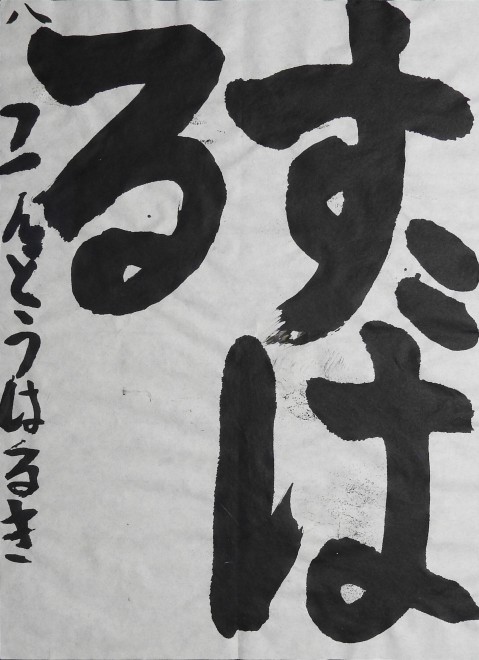 すば
る
八 こんどうはるき